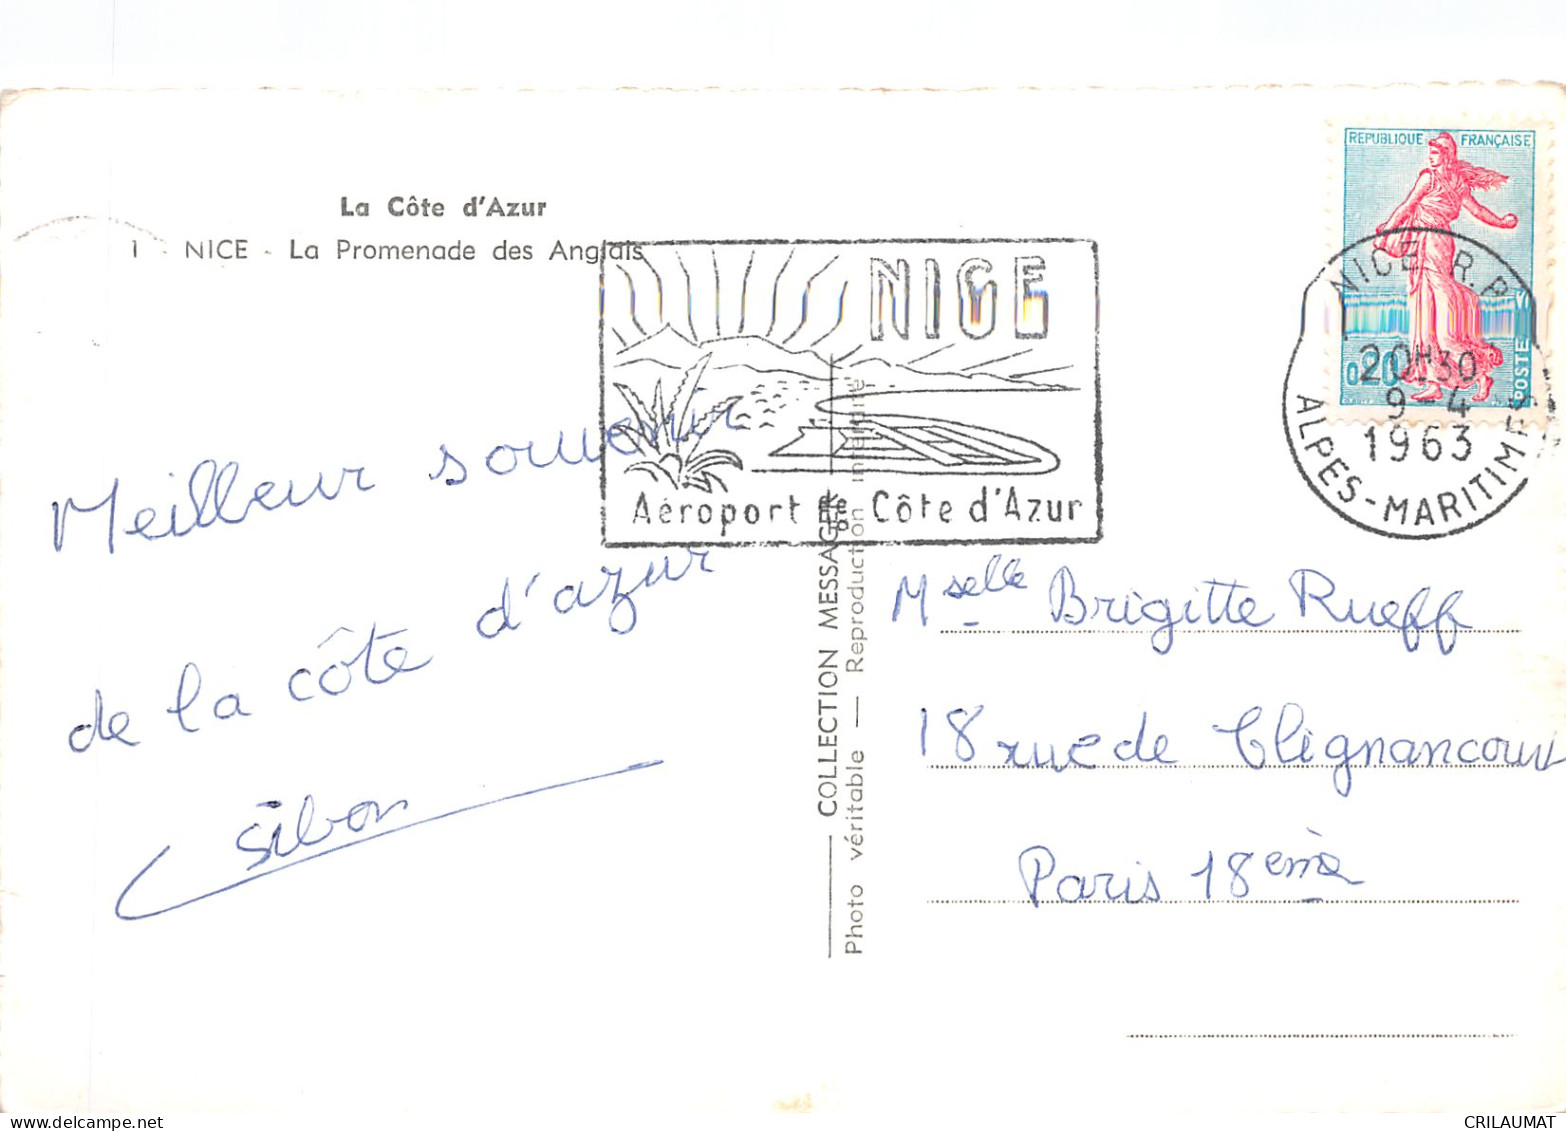 La Côte d'Azur
1 - NICE - La Promenade des Anglais
NICE
Aéroport de Côte d'Azur
REPUBLIQUE FRANÇAISE
0,20
POSTES
NICE R.P.
20H30
9-4
1963
ALPES-MARITIMES
Meilleur souvenir
de la côte d'azur
Sibon
COLLECTION MESSAGER
Photo véritable — Reproduction interdite
Mselle Brigitte Rueff
18 rue de Clignancourt
Paris 18ème
CRILAUMAT